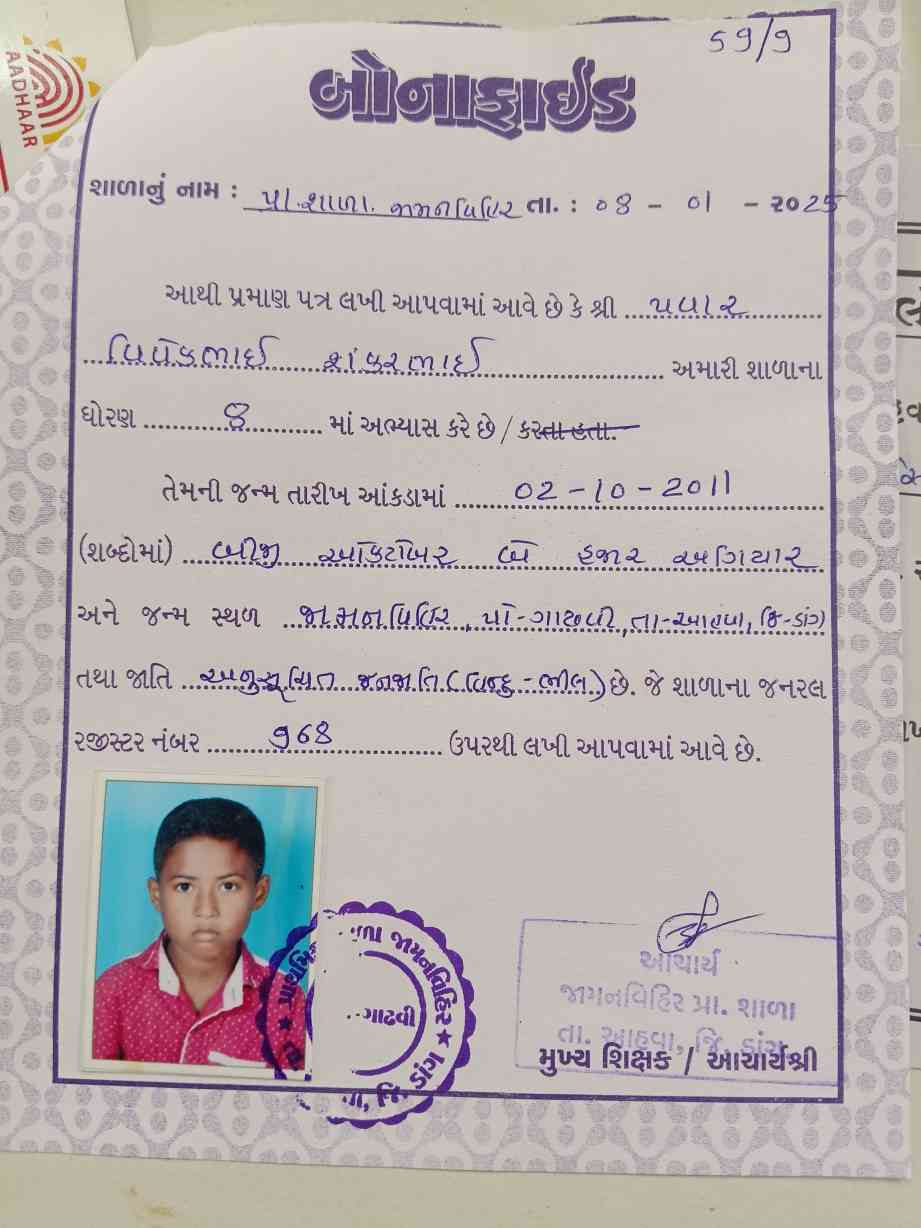 59/9
AADHAAR
બોનાફાઈડ
શાળાનું નામ : પ્રા.શાળા. જામનવિહિર તા. : ૦8 - ૦1 - ૨૦25
આથી પ્રમાણ પત્ર લખી આપવામાં આવે છે કે શ્રી પવાર
વિવેકભાઈ શંકરભાઈ અમારી શાળાના
ધોરણ 8 માં અભ્યાસ કરે છે / કરતા હતા.
તેમની જન્મ તારીખ આંકડામાં 02 - 10 - 2011
(શબ્દોમાં) બીજી ઓક્ટોબર બે હજાર અગિયાર
અને જન્મ સ્થળ જામનવિહિર, પો-ગાઢવી, તા-આહવા, જિ-ડાંગ
તથા જાતિ અનુસૂચિત જનજાતિ (હિન્દુ - ભીલ) છે. જે શાળાના જનરલ
રજીસ્ટર નંબર 968 ઉપરથી લખી આપવામાં આવે છે.
જામનવિહિર ★ ડાંગ
ગાઢવી
આચાર્ય
જામનવિહિર પ્રા. શાળા
તા. આહવા, જિ. ડાંગ
મુખ્ય શિક્ષક / આચાર્યશ્રી